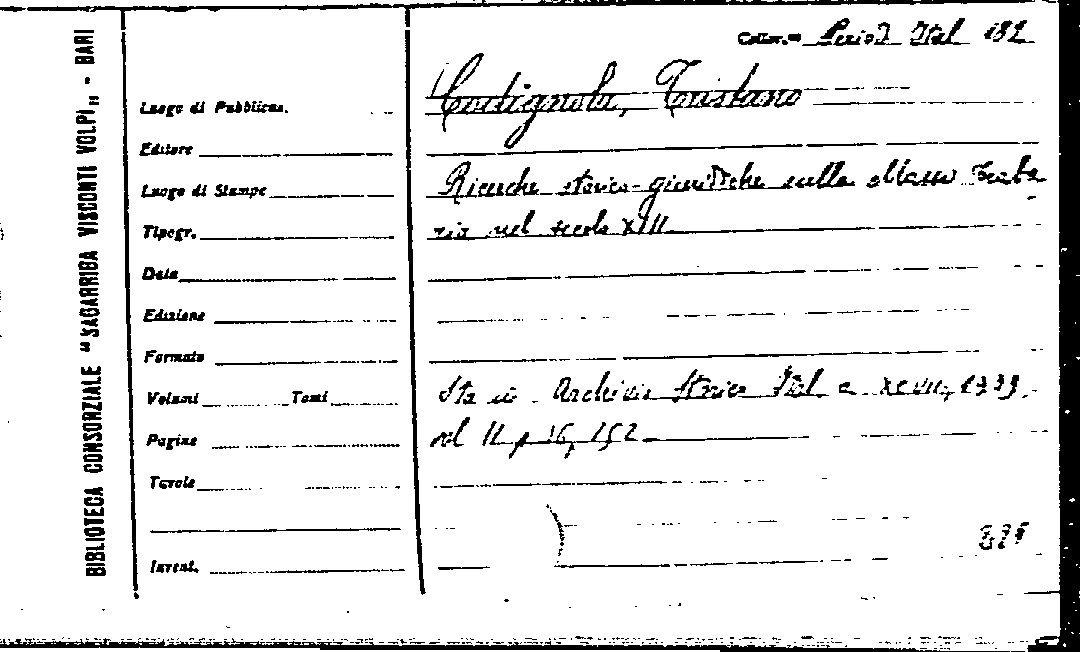 BIBLIOTECA CONSORZIALE "SAGARRIGA VISCONTI VOLPI" - BARI
Colloc.ne Period. Ital 182
Luogo di Pubblicaz.
Codignola, Tristano
Editore
Luogo di Stampa
Ricerche storico-giuridiche sulla Massa Traba
Tipogr.
ria nel secolo XIII
Data
Edizione
Formato
Volumi Tomi
Sta in Archivio Storico Ital a XCVII, 1939,
Pagine
vol II p 36, 152
Tavole
Invent.